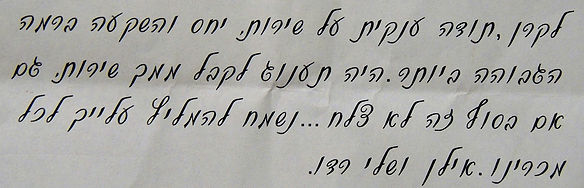 לקרן, תודה ענקית על שירות, יחס והשקעה ברמה
הגבוהה ביותר. היה תענוג לקבל ממך שירות גם
אם בסוף זה לא צלח... נשמח להמליץ עלייך לכל
מכרינו. אילן ושלי רדו.